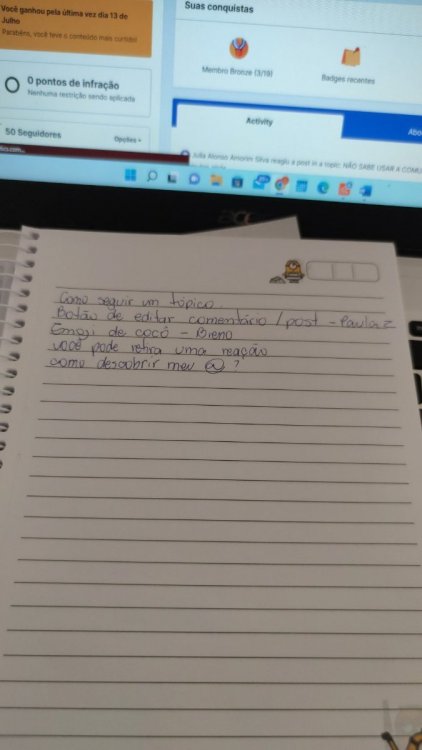 Você ganhou pela última vez dia 13 de
Julho
Parabéns, você teve o conteúdo mais curtido!
0 pontos de infração
Nenhuma restrição sendo aplicada
50 Seguidores
Opções
Suas conquistas
Membro Bronze (3/19)
Badges recentes
Activity
Abo
Julia Alonso Amorim Silva reagiu a post in a topic: NÃO SABE USAR A COMU
acer
Como seguir um tópico
Botão de editar comentário / post - Paulaz
Emoji de cocô - Bieno
você pode retira uma reação
como descobrir meu @ ?